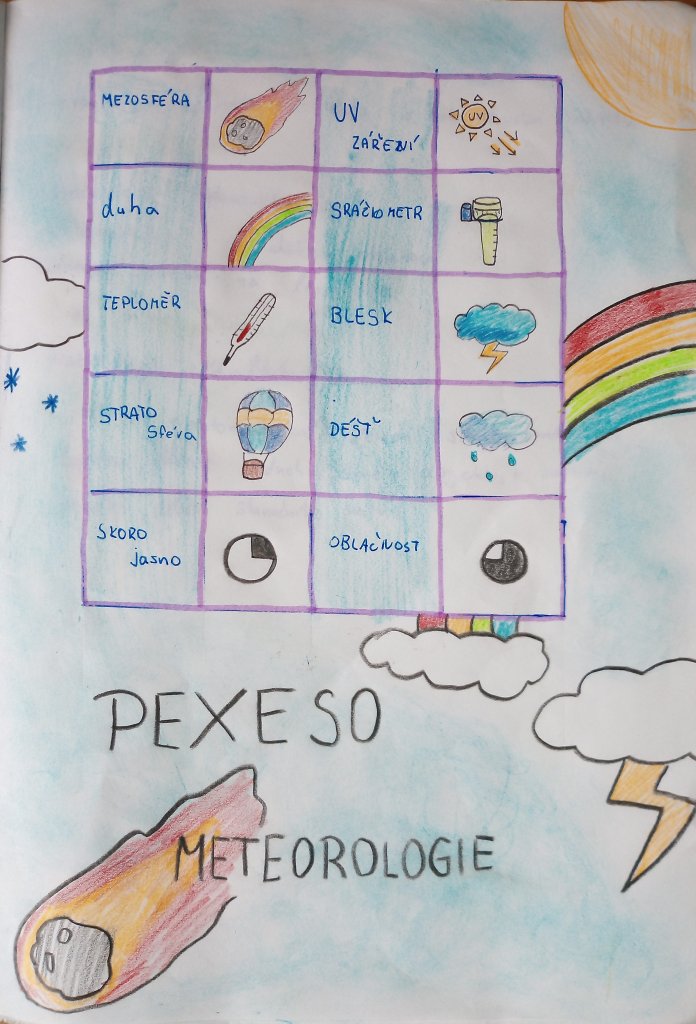 MEZOSFÉRA
UV
ZÁŘENÍ
UV
duha
SRÁŽKOMETR
TEPLOMĚR
BLESK
STRATO
sféra
DÉŠŤ
SKORO
jasno
OBLAČNOST
PEXESO
METEOROLOGIE